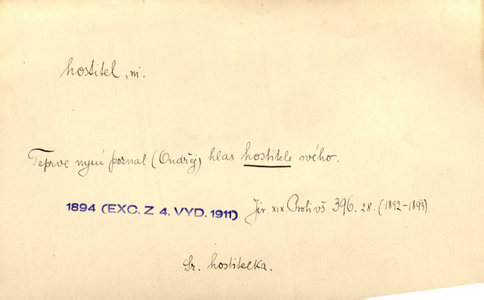 hostitel, m.
Teprve nyní poznal (Ondřej) hlas hostitele svého.
1894 (EXC. Z 4. VYD. 1911) Jir. XIX Proti vš 396. 28. (1892-1893)
Sr. hostitelka.